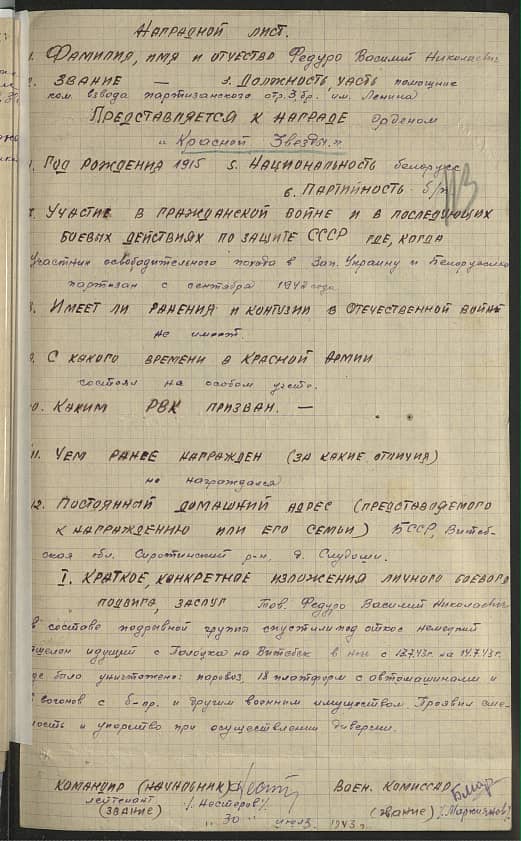 НАГРАДНОЙ ЛИСТ.
1. ФАМИЛИЯ, ИМЯ И ОТЧЕСТВО Федуро Василий Николаевич
2. ЗВАНИЕ — 3. ДОЛЖНОСТЬ, ЧАСТЬ помощник
ком. взвода партизанского отр. 3, бр. им. Ленина
ПРЕДСТАВЛЯЕТСЯ К НАГРАДЕ орденом
"Красной Звезды."
4. ГОД РОЖДЕНИЯ 1915 5. НАЦИОНАЛЬНОСТЬ белорусс
6. ПАРТИЙНОСТЬ б/п
7. УЧАСТИЕ В ГРАЖДАНСКОЙ ВОЙНЕ И В ПОСЛЕДУЮЩИХ
БОЕВЫХ ДЕЙСТВИЯХ ПО ЗАЩИТЕ СССР ГДЕ, КОГДА
Участник освободительного похода в Зап. Украину и Белоруссию
партизан с сентября 1942 года
8. ИМЕЕТ ЛИ РАНЕНИЯ И КОНТУЗИИ В ОТЕЧЕСТВЕННОЙ ВОЙНЕ
не имеет.
9. С КАКОГО ВРЕМЕНИ В КРАСНОЙ АРМИИ
состоял на особом учете.
10. КАКИМ РВК ПРИЗВАН. —
11. ЧЕМ РАНЕЕ НАГРАЖДЕН (ЗА КАКИЕ ОТЛИЧИЯ)
не награждался
12. ПОСТОЯННЫЙ ДОМАШНИЙ АДРЕС (ПРЕДСТАВЛЯЕМОГО
К НАГРАЖДЕНИЮ ИЛИ ЕГО СЕМЬИ) БССР, Витеб-
ская обл. Сиротинский р-н, д. Слубоши.
I. КРАТКОЕ, КОНКРЕТНОЕ ИЗЛОЖЕНИЯ ЛИЧНОГО БОЕВОГО
ПОДВИГА, ЗАСЛУГ Тов. Федуро Василий Николаевич
в составе подрывной группы спустили под откос немецкий
эшелон идущий с Полоцка на Витебск в ночь с 13.7.43г. на 14.7.43г.
где было уничтожено: паровоз, 18 платформ с автомашинами и
вагонов с б-пр. и другим военным имуществом. Проявил сме-
лость и упорство при осуществлении диверсии.
КОМАНДИР (НАЧАЛЬНИК) ВОЕН. КОМИССАР
лейтенант /Нестеров/
(ЗВАНИЕ) (ЗВАНИЕ) /Маркиянов/
"30" июля 1943 г.